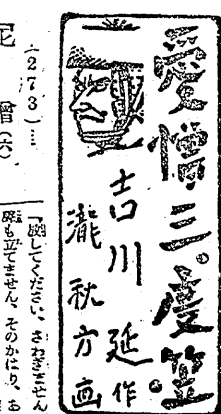 愛憎三度笠
吉川 延作
瀧 秋方画
(273)……
憎(六)
してください、さわぎません
も立てません、そのかはり、お